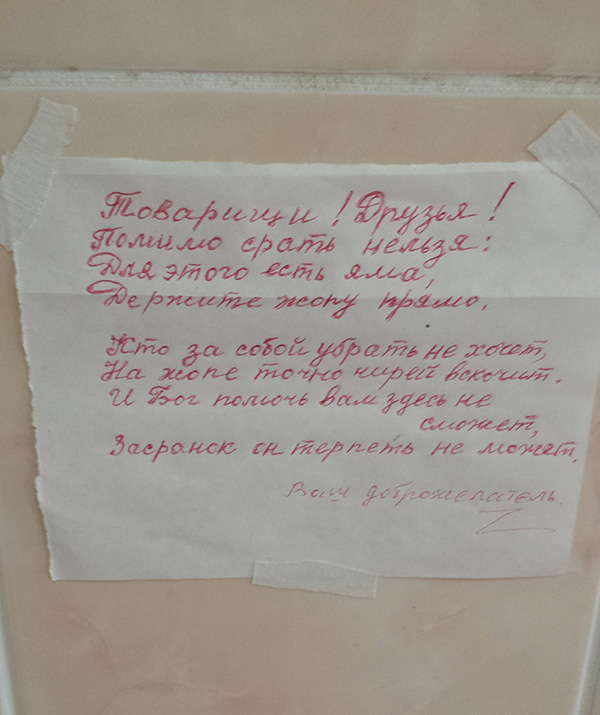 Товарищи! Друзья!
Помимо срать нельзя:
Для этого есть яма,
Держите жопу прямо.
Кто за собой убрать не хочет,
На жопе точно чирей вскочит.
И Бог помочь вам здесь не
сможет,
Засранок он терпеть не может.
Ваш доброжелатель.
Z